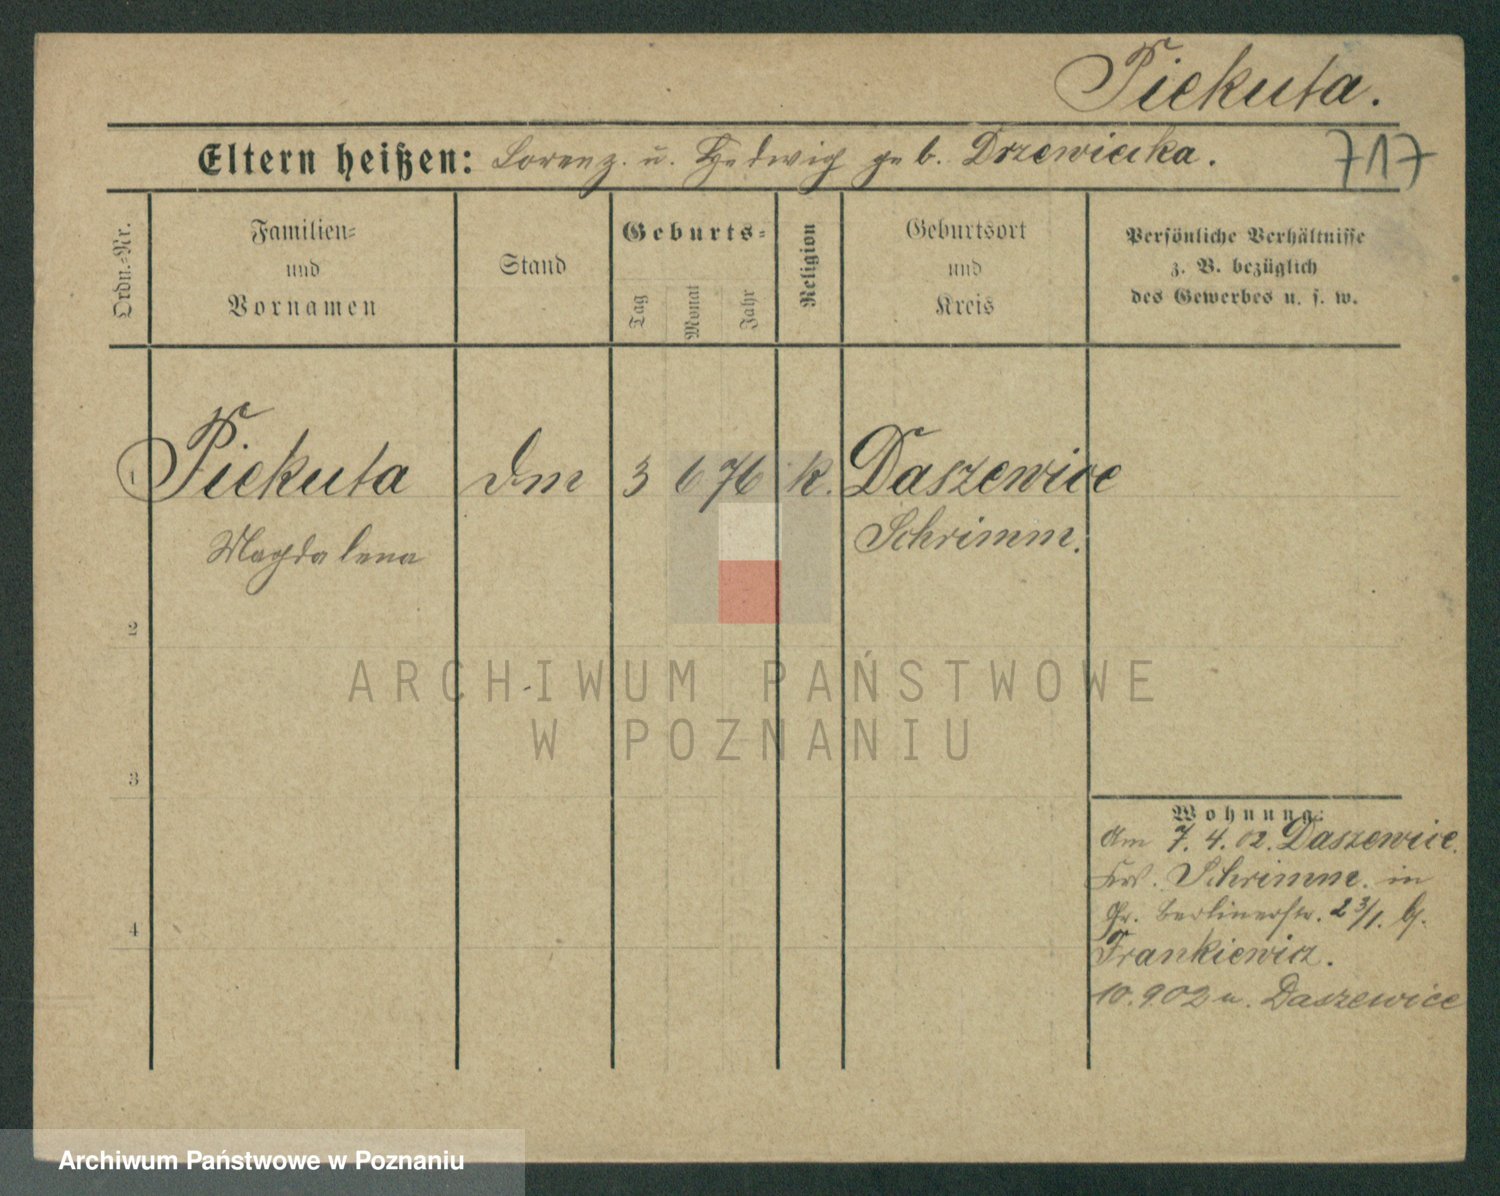 Piekuta.
Eltern heißen: Lorenz. u. Hedwig geb. Drzewiecka.
717
Ordn.-Nr.
Familien-
und
Vornamen
Stand
Geburts-
Tag
Monat
Jahr
Religion
Geburtsort
und
Kreis
Persönliche Verhältnisse
z. B. bezüglich
des Gewerbes u. s. w.
1 Piekuta Dm 3 6 76 k. Daszewice
Magdalena Schrimm.
2
3
4
Wohnung:
Am 7. 4. 02. Daszewice.
Krs. Schrimm. in
Gr. Berlinerstr. 23/1. b/.
Frankiewicz.
10.902 n. Daszewice
ARCHIWUM PAŃSTWOWE
W POZNANIU
Archiwum Państwowe w Poznaniu